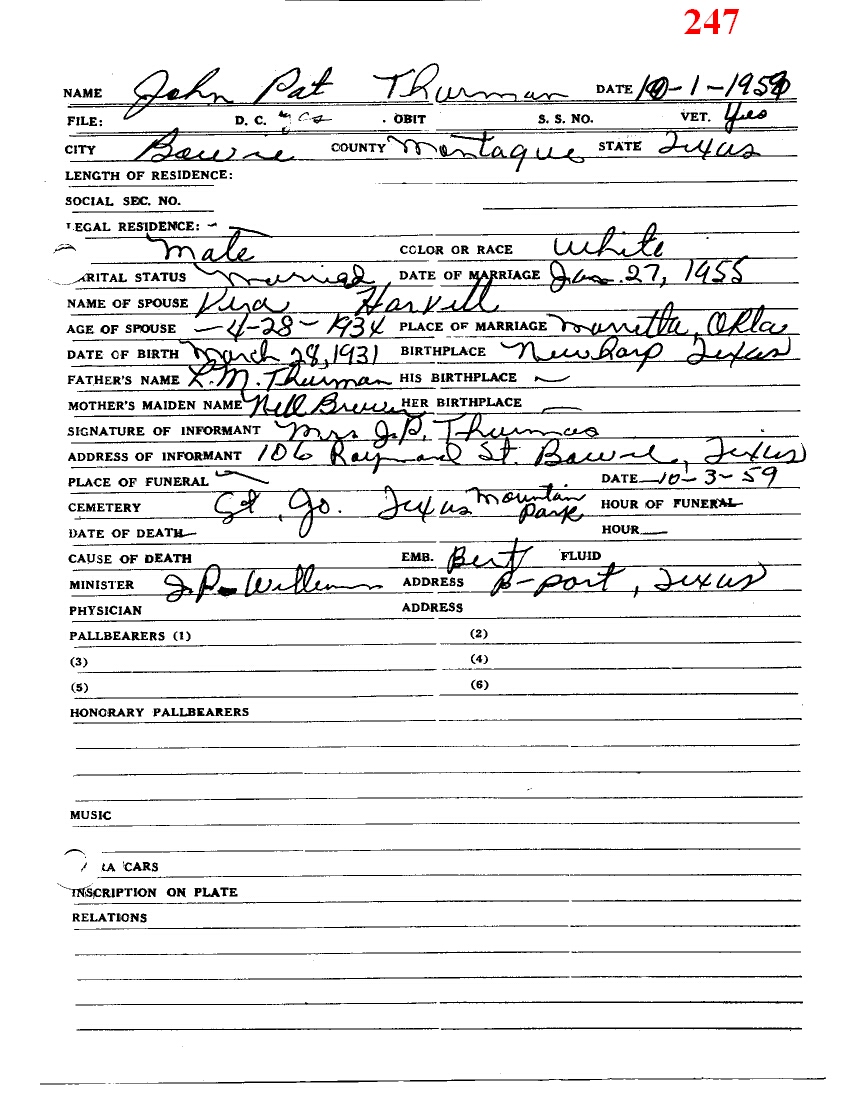 247
NAME John Pat Thurman DATE 10-1-1959
FILE: D. C. yes . OBIT S. S. NO. VET. Yes
CITY Bowie COUNTY Montague STATE Texas
LENGTH OF RESIDENCE:
SOCIAL SEC. NO.
LEGAL RESIDENCE: -
Male COLOR OR RACE White
ARITAL STATUS Married DATE OF MARRIAGE Jan. 27, 1955
NAME OF SPOUSE Vera Harvell
AGE OF SPOUSE -4-28-1934 PLACE OF MARRIAGE Marietta, Okla
DATE OF BIRTH March 28, 1931 BIRTHPLACE Newharp Texas
FATHER'S NAME L.M. Thurman HIS BIRTHPLACE —
MOTHER'S MAIDEN NAME Nell Brewer HER BIRTHPLACE —
SIGNATURE OF INFORMANT Mrs J.P. Thurman
ADDRESS OF INFORMANT 106 Raymond St. Bowie, Texas
PLACE OF FUNERAL — DATE 10-3-59
CEMETERY St. Jo. Texas Mountain Park HOUR OF FUNERAL
DATE OF DEATH HOUR
CAUSE OF DEATH EMB. Bert FLUID
MINISTER J.P. ADDRESS B-port, Texas
PHYSICIAN ADDRESS
PALLBEARERS (1) (2)
(3) (4)
(5) (6)
HONORARY PALLBEARERS
MUSIC
RA CARS
INSCRIPTION ON PLATE
RELATIONS